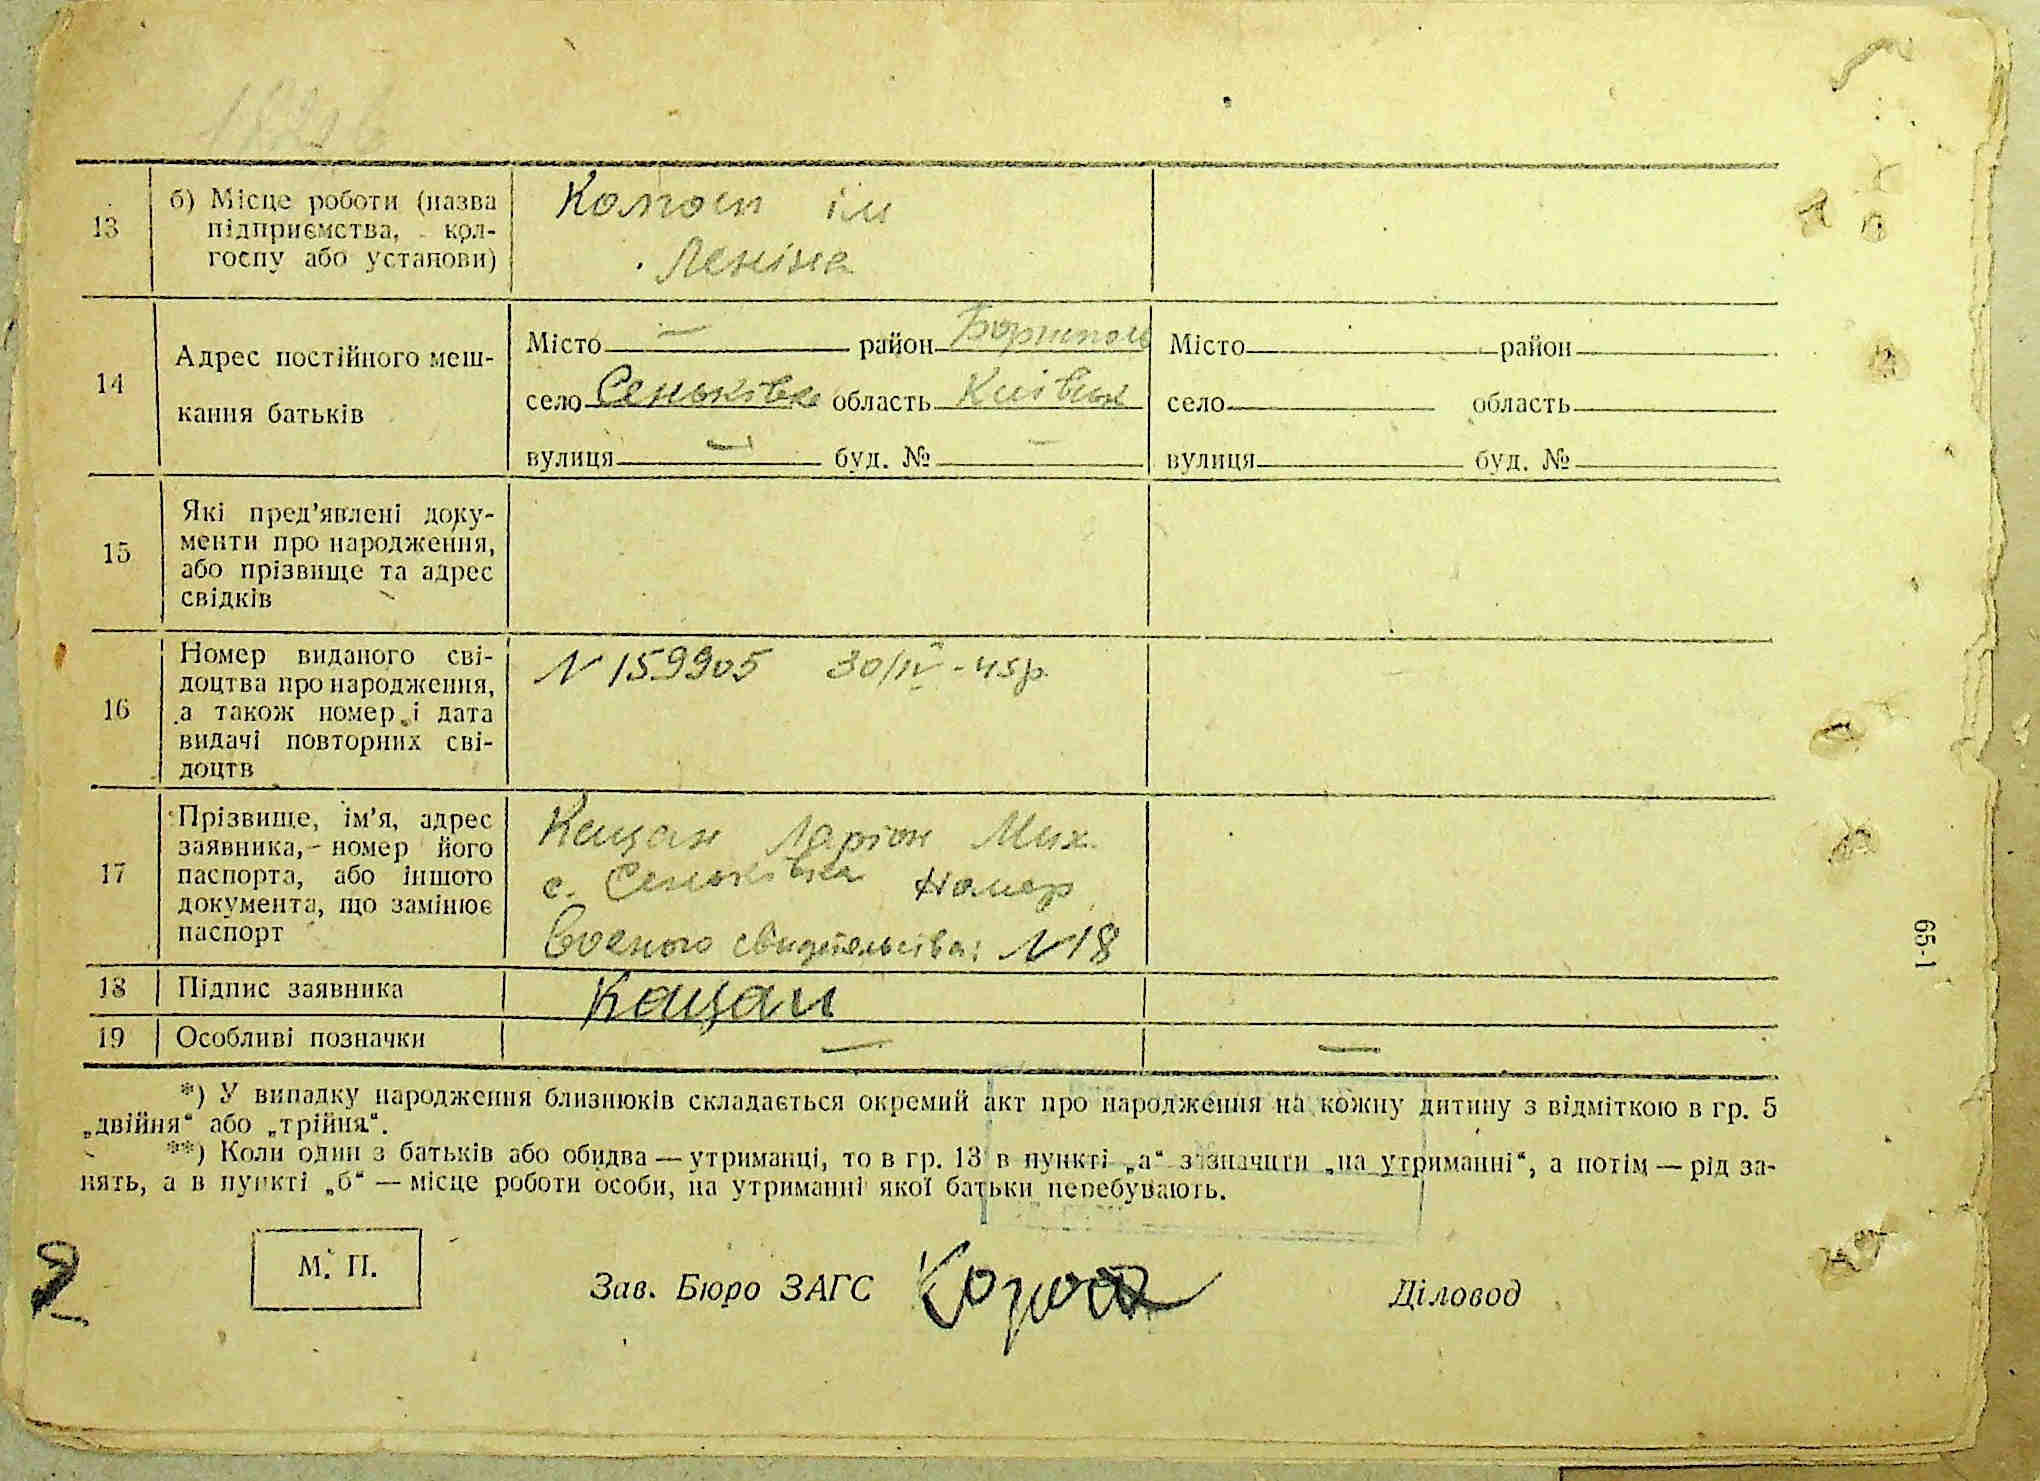 13
б) Місце роботи (назва
підприємства, кол-
госпу або установи)
Колгосп ім
Леніна
14
Адрес постійного меш-
кання батьків
Місто — район Бориспол
село Сеньківка область Київськ
вулиця — буд. № —
Місто район
село область
вулиця буд. №
15
Які пред’явлені доку-
менти про народження,
або прізвище та адрес
свідків
16
Номер виданого сві-
доцтва про народження,
а також номер і дата
видачі повторних сві-
доцтв
N 159905 30/IV-45р.
17
Прізвище, ім’я, адрес
заявника, номер його
паспорта, або іншого
документа, що замінює
паспорт
Кацан Ларіон Мих.
с. Сеньківка номер
воєного свидетельства: N18
18
Підпис заявника
Кацан
19
Особливі позначки
— —
*) У випадку народження близнюків складається окремий акт про народження на кожну дитину з відміткою в гр. 5
„двійня“ або „трійня“.
**) Коли один з батьків або обидва — утриманці, то в гр. 13 в пункті „а“ зазначити „на утриманні“, а потім — рід за-
нять, а в пункті „б“ — місце роботи особи, на утриманні якої батьки перебувають.
65-1
М. П.
Зав. Бюро ЗАГС
Діловод